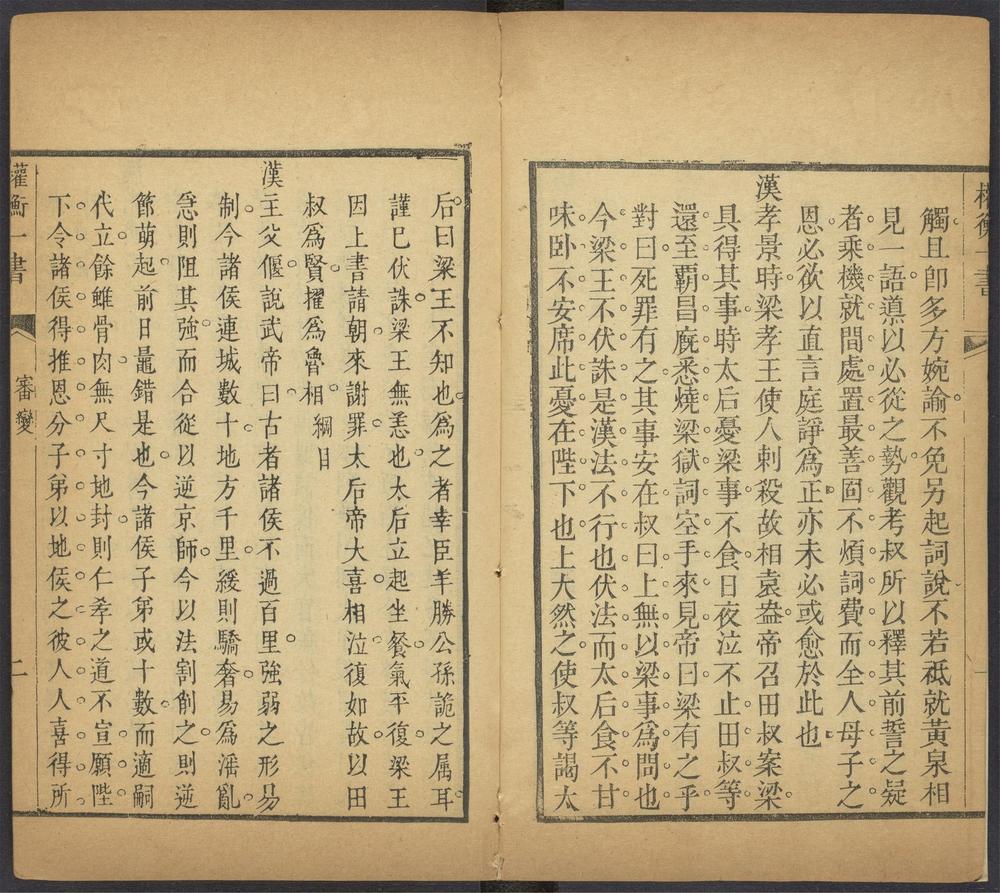 權衡一書
觸且卽多方婉諭不免另起詞說不若祗就黃泉相
見一語導以必從之勢觀考叔所以釋其前誓之疑
者乘機就間處置最善固不煩詞費而全人母子之
恩必欲以直言庭諍爲正亦未必或愈於此也
漢孝景時梁孝王使人刺殺故相袁盎帝召田叔案梁
具得其事時太后憂梁事不食日夜泣不止田叔等
還至霸昌廐悉燒梁獄詞空手來見帝曰梁有之乎
對曰死罪有之其事安在叔曰上無以梁事爲問也
今梁王不伏誅是漢法不行也伏法而太后食不甘
味卧不安席此憂在陛下也上大然之使叔等謁太
后曰梁王不知也爲之者幸臣羊勝公孫詭之属耳
謹已伏誅梁王無恙也太后立起坐餐氣平復梁王
因上書請朝來謝罪太后帝大喜相泣復如故以田
叔爲賢擢爲魯相 綱目
漢主父偃說武帝曰古者諸侯不過百里強弱之形易
制今諸侯連城數十地方千里緩則驕奢易爲滛亂
急則阻其強而合從以逆京師今以法割削之則逆
節萌起前日鼂錯是也今諸侯子弟或十數而適嗣
代立餘雖骨肉無尺寸地封則仁孝之道不宣願陛
下令諸侯得推恩分子弟以地侯之彼人人喜得所
權衡一書 審變 二